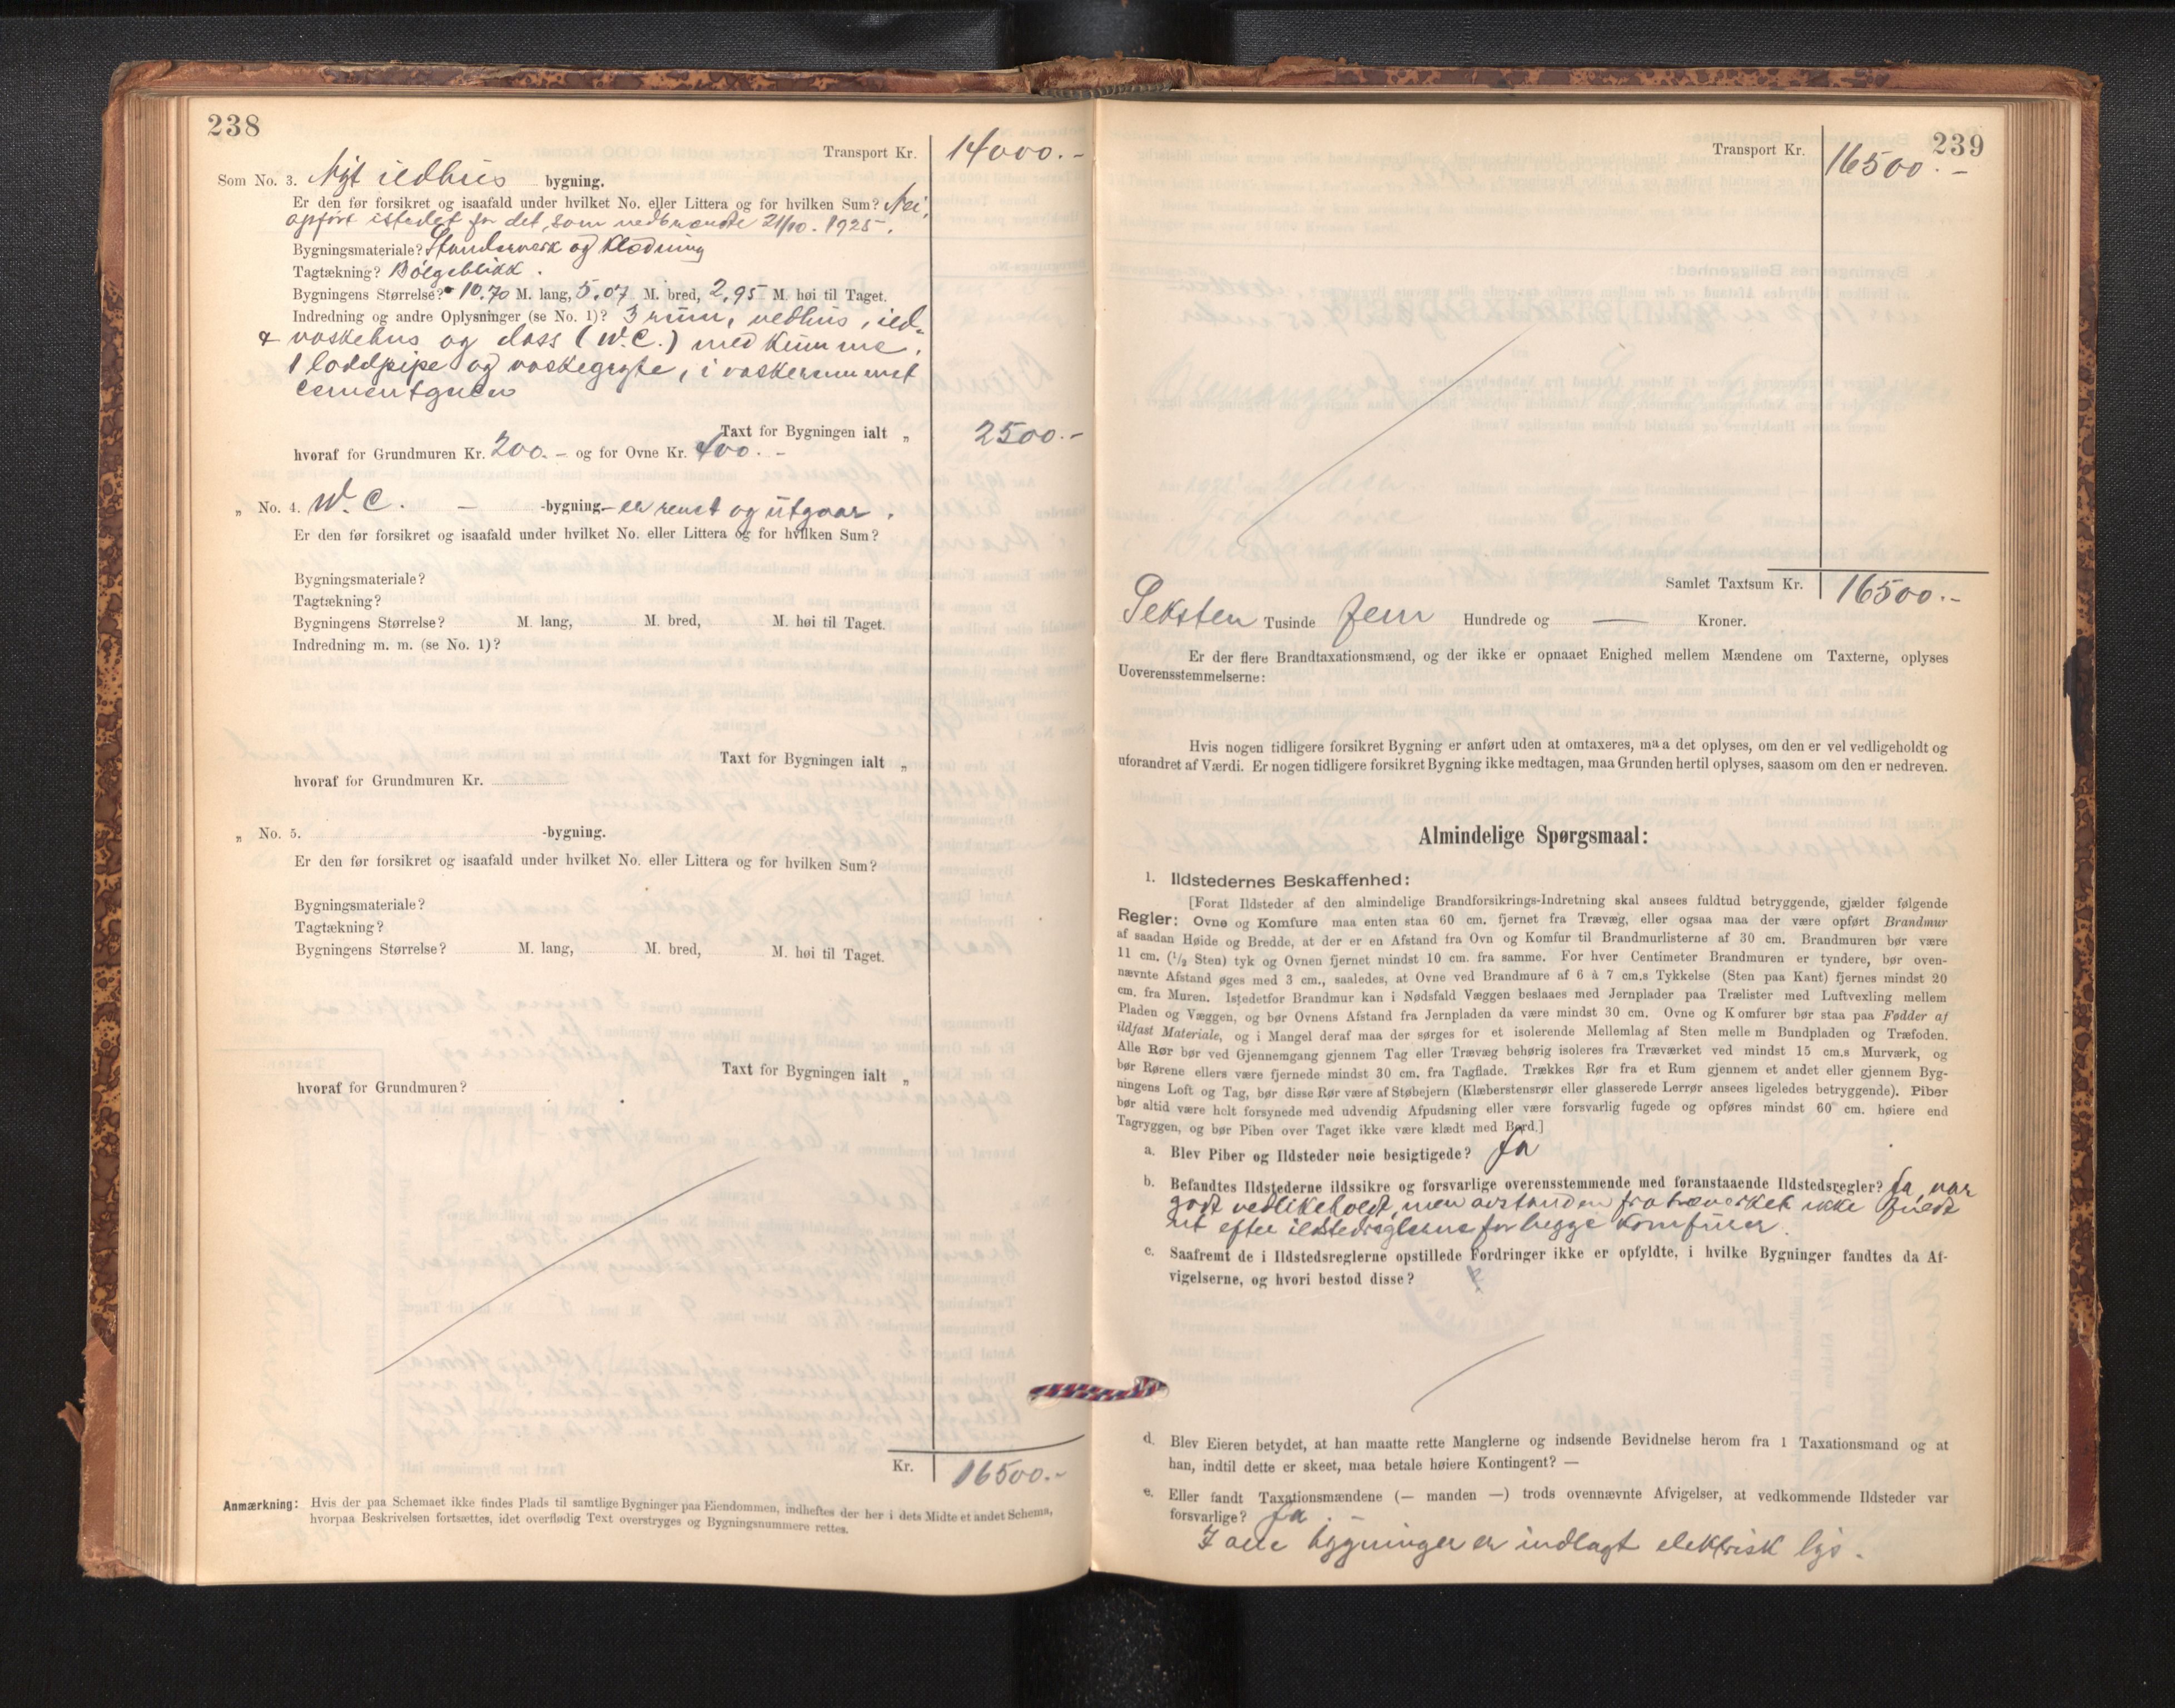 238
Transport Kr. 14000.-
Som No. 3. Nyt ildhus bygning.
Er den før forsikret og isaafald under hvilket No. eller Littera og for hvilken Sum? Nei,
opført istedet for det, som nedbrændte 21/10. 1925.
Bygningsmateriale? Standerverk og Klædning
Tagtækning? Bölgeblikk.
Bygningens Størrelse? 10.70 M. lang, 5.07 M. bred, 2,95 M. høi til Taget.
Indredning og andre Oplysninger (se No. 1)? 3 rum, vedhus, ild-
& vaskehus og dass (W.C.) med Kumme,
1 loddpipe og vaskegryte, i vaskerummet
cementgulv
Taxt for Bygningen ialt „ 2500.-
hvoraf for Grundmuren Kr. 200.- og for Ovne Kr. 400.-
„ No. 4. W.C. - -bygning- er revet og utgaar.
Er den før forsikret og isaafald under hvilket No. eller Littera og for hvilken Sum?
Bygningsmateriale?
Tagtækning?
Bygningens Størrelse? M. lang, M. bred, M. høi til Taget.
Indredning m. m. (se No. 1)?
Taxt for Bygningen ialt „
hvoraf for Grundmuren Kr.
„ No. 5. -bygning.
Er den før forsikret og isaafald under hvilket No. eller Littera og for hvilken Sum?
Bygningsmateriale?
Tagtækning?
Bygningens Størrelse? M. lang, M. bred, M. høi til Taget.
Taxt for Bygningen ialt „
hvoraf for Grundmuren?
Kr. 16500.-
Anmærkning: Hvis der paa Schemaet ikke findes Plads til samtlige Bygninger paa Eiendommen, indheftes der her i dets Midte et andet Schema,
hvorpaa Beskrivelsen fortsættes, idet overflødig Text overstryges og Bygningsnummere rettes.
239
Transport Kr. 16500.-
Samlet Taxtsum Kr. 16500.-
Seksten Tusinde fem Hundrede og — Kroner.
Er der flere Brandtaxationsmænd, og der ikke er opnaaet Enighed mellem Mændene om Taxterne, oplyses
Uoverensstemmelserne:
Hvis nogen tidligere forsikret Bygning er anført uden at omtaxeres, maa det oplyses, om den er vel vedligeholdt og
uforandret af Værdi. Er nogen tidligere forsikret Bygning ikke medtagen, maa Grunden hertil oplyses, saasom om den er nedreven.
Almindelige Spørgsmaal:
1. Ildstedernes Beskaffenhed:
[Forat Ildsteder af den almindelige Brandforsikrings-Indretning skal ansees fuldtud betryggende, gjælder følgende
Regler: Ovne og Komfure maa enten staa 60 cm. fjernet fra Trævæg, eller ogsaa maa der være opført Brandmur
af saadan Høide og Bredde, at der er en Afstand fra Ovn og Komfur til Brandmurlisterne af 30 cm. Brandmuren bør være
11 cm. (1/2 Sten) tyk og Ovnen fjernet mindst 10 cm. fra samme. For hver Centimeter Brandmuren er tyndere, bør oven-
nævnte Afstand øges med 3 cm., saaledes, at Ovne ved Brandmure af 6 à 7 cm.s Tykkelse (Sten paa Kant) fjernes mindst 20
cm. fra Muren. Istedetfor Brandmur kan i Nødsfald Væggen beslaaes med Jernplader paa Trælister med Luftvexling mellem
Pladen og Væggen, og bør Ovnens Afstand fra Jernpladen da være mindst 30 cm. Ovne og Komfurer bør staa paa Fødder af
ildfast Materiale, og i Mangel deraf maa der sørges for et isolerende Mellemlag af Sten mellem Bundpladen og Træfoden.
Alle Rør bør ved Gjennemgang gjennem Tag eller Trævæg behørig isoleres fra Træværket ved mindst 15 cm.s Murværk, og
bør Rørene ellers være fjernede mindst 30 cm. fra Tagflade. Trækkes Rør fra et Rum gjennem et andet eller gjennem Byg-
ningens Loft og Tag, bør disse Rør være af Støbejern (Klæberstensrør eller glasserede Lerrør ansees ligeledes betryggende). Piber
bør altid være helt forsynede med udvendig Afpudsning eller være forsvarlig fugede og opføres mindst 60 cm. høiere end
Tagryggen, og bør Piben over Taget ikke være klædt med Bord.]
a. Blev Piber og Ildsteder nøie besigtigede? Ja
b. Befandtes Ildstederne ildssikre og forsvarlige overensstemmende med foranstaaende Ildstedsregler? Ja, var
godt vedlikeholdt, men avstanden fra træverket ikke fuldt
ut efter ildstedsreglerne for begge Komfurer.
c. Saafremt de i Ildstedsreglerne opstillede Fordringer ikke er opfyldte, i hvilke Bygninger fandtes da Af-
vigelserne, og hvori bestod disse?
d. Blev Eieren betydet, at han maatte rette Manglerne og indsende Bevidnelse herom fra 1 Taxationsmand og at
han, indtil dette er skeet, maa betale høiere Kontingent? —
e. Eller fandt Taxationsmændene (— manden —) trods ovennævnte Afvigelser, at vedkommende Ildsteder var
forsvarlige? Ja.
I alle bygninger er indlagt elektrisk lys.